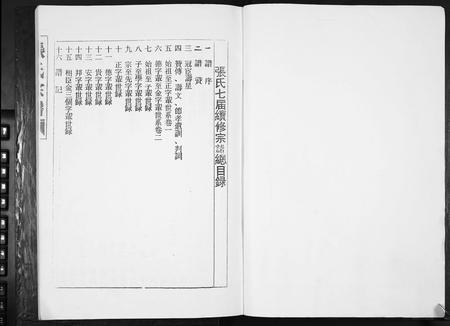 張氏七届續修宗譜總目錄
一 譜序
二 譜資
三 冠宸壽星
四 贊傳、壽文、節孝
五 始祖至正字輩世系卷一
六 德字輩至金字輩世系卷二
七 始祖至子輩世錄
八 子至學字輩世錄
九 宗至先字輩世錄
十 正字輩世錄
十一 德字輩世錄
十二 貴字輩世錄
十三 安字輩世錄
十四 邦字輩世錄
十五 相臣金三個字輩世錄
十六 譜記